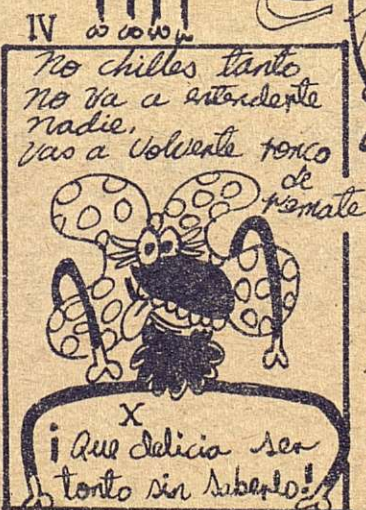 IV
No chilles tanto
no va a entenderte
nadie,
vas a volverte ronco
de
remate
X
¡Que delicia ser
tonto sin saberlo!